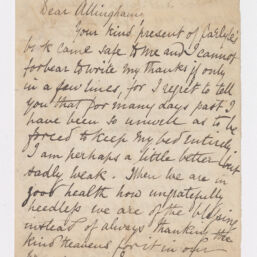 Dear Allingham,
Your kind present of Carlyle's
book came safe to me and I cannot
forbear to write my thanks if only
in a few lines, for I regret to tell
you that for many days past I
have been so unwell as to be
forced to keep my bed entirely.
I am perhaps a little better but
sadly weak. When we are in
good health how ungratefully
heedless we are of the blessing
instead of always thanking the
kind heavens for it in our